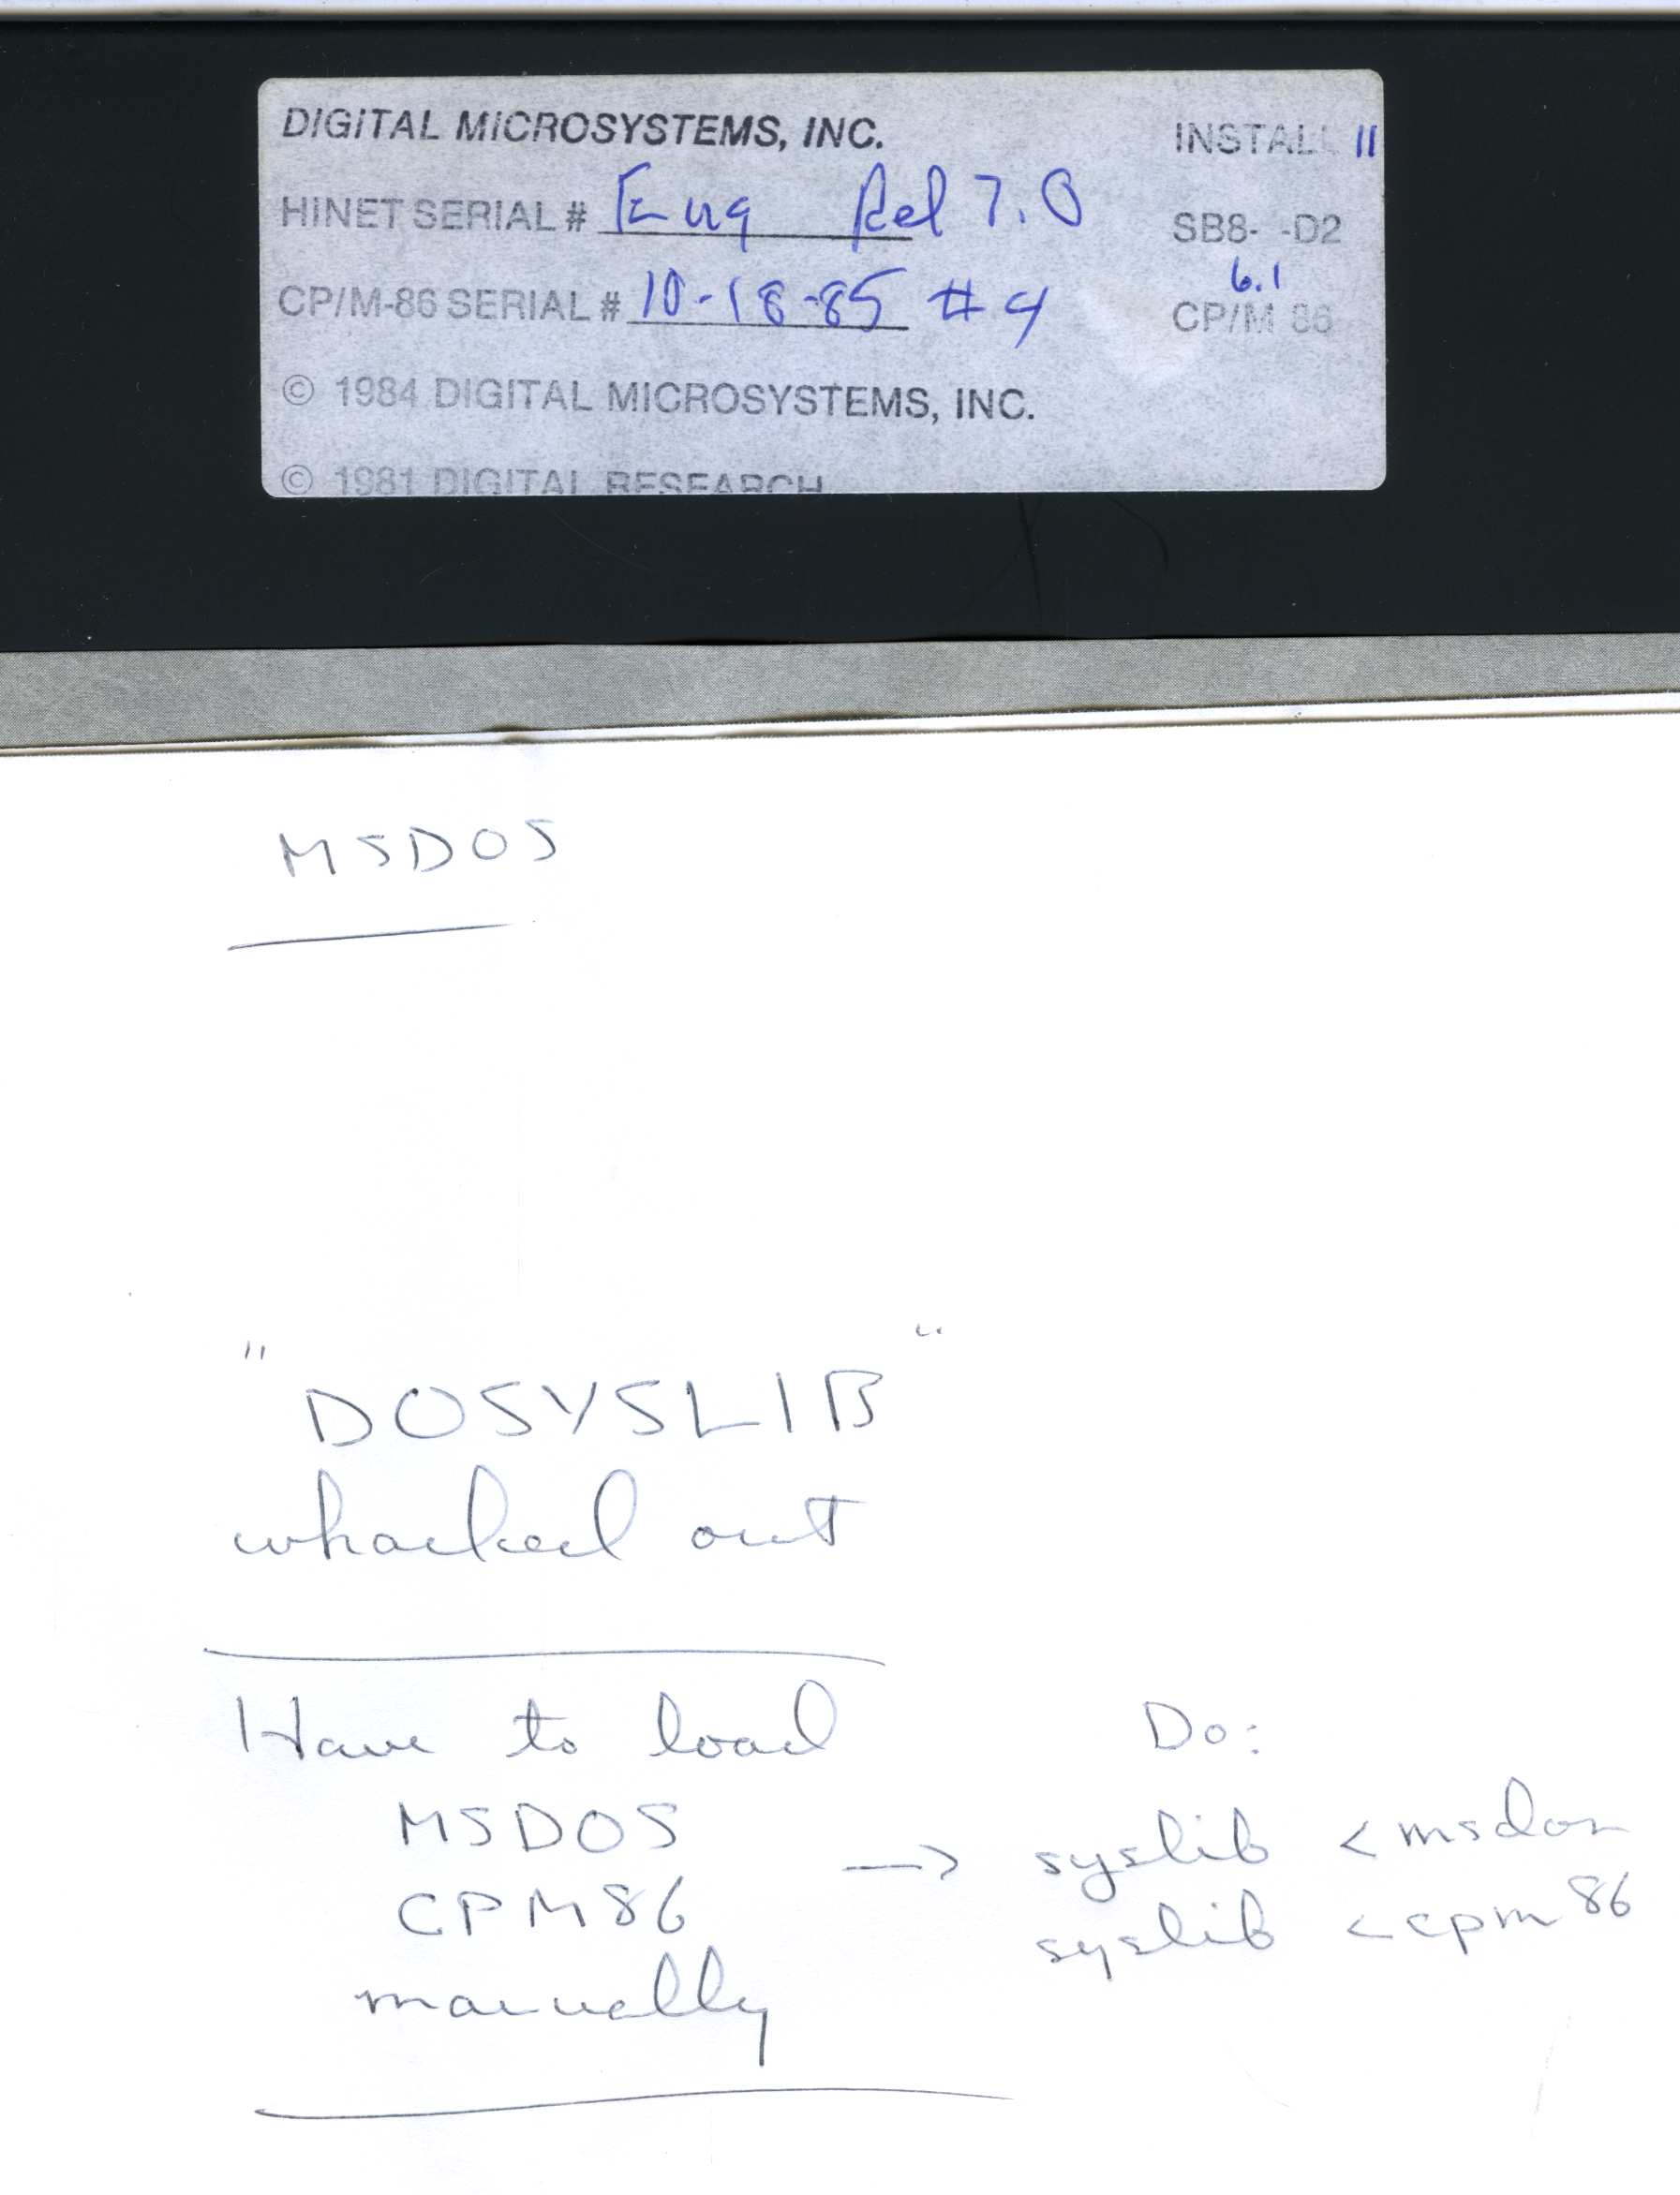 DIGITAL MICROSYSTEMS, INC. INSTALL 11
HINET SERIAL # Eng Rel 7.0 SB8- -D2
6.1
CP/M-86 SERIAL # 10-18-85 #4 CP/M 86
© 1984 DIGITAL MICROSYSTEMS, INC.
© 1981 DIGITAL RESEARCH
MSDOS
"DOSYSLIB"
whacked out
Have to load Do:
MSDOS → syslib < msdos
CPM86 syslib < cpm86
manually